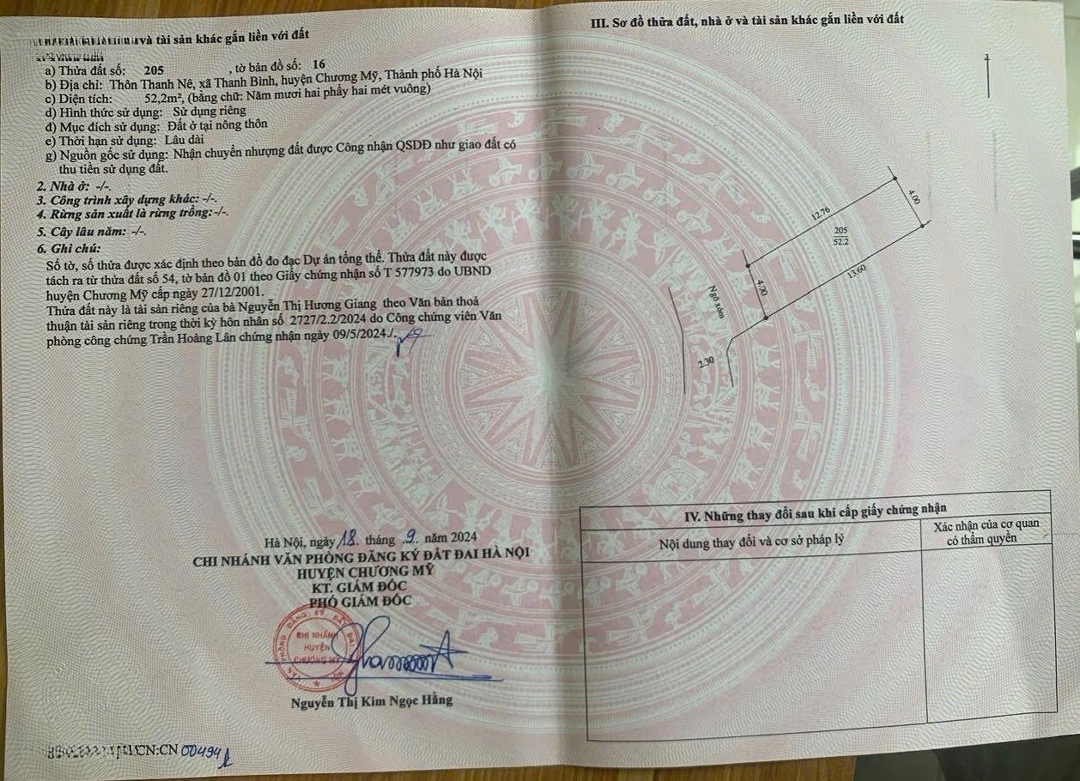 và tài sản khác gắn liền với đất
a) Thửa đất số: 205 , tờ bản đồ số: 16
b) Địa chỉ: Thôn Thanh Nê, xã Thanh Bình, huyện Chương Mỹ, Thành phố Hà Nội
c) Diện tích: 52,2m², (bằng chữ: Năm mươi hai phẩy hai mét vuông)
d) Hình thức sử dụng: Sử dụng riêng
đ) Mục đích sử dụng: Đất ở tại nông thôn
e) Thời hạn sử dụng: Lâu dài
g) Nguồn gốc sử dụng: Nhận chuyển nhượng đất được Công nhận QSDĐ như giao đất có
thu tiền sử dụng đất.
2. Nhà ở: -/-.
3. Công trình xây dựng khác: -/-.
4. Rừng sản xuất là rừng trồng:-/-.
5. Cây lâu năm: -/-.
6. Ghi chú:
Số tờ, số thửa được xác định theo bản đồ đo đạc Dự án tổng thể. Thửa đất này được
tách ra từ thửa đất số 54, tờ bản đồ 01 theo Giấy chứng nhận số T 577973 do UBND
huyện Chương Mỹ cấp ngày 27/12/2001.
Thửa đất này là tài sản riêng của bà Nguyễn Thị Hương Giang theo Văn bản thoả
thuận tài sản riêng trong thời kỳ hôn nhân số 2727/2.2/2024 do Công chứng viên Văn
phòng công chứng Trần Hoàng Lân chứng nhận ngày 09/5/2024./.
Hà Nội, ngày 18. tháng .9. năm 2024
CHI NHÁNH VĂN PHÒNG ĐĂNG KÝ ĐẤT ĐAI HÀ NỘI
HUYỆN CHƯƠNG MỸ
KT. GIÁM ĐỐC
PHÓ GIÁM ĐỐC
VĂN PHÒNG ĐĂNG KÝ ĐẤT ĐAI HÀ NỘI
CHI NHÁNH
HUYỆN
CHƯƠNG MỸ
Nguyễn Thị Kim Ngọc Hằng
CN:CN 00494
III. Sơ đồ thửa đất, nhà ở và tài sản khác gắn liền với đất
12.76
4.00
205
52.2
13.60
4.30
Ngõ xóm
2.30
IV. Những thay đổi sau khi cấp giấy chứng nhận
Nội dung thay đổi và cơ sở pháp lý
Xác nhận của cơ quan
có thẩm quyền